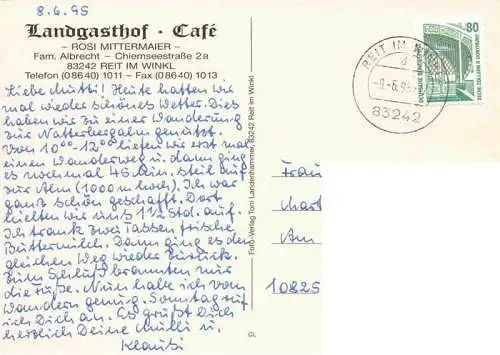 8.6.95
Landgasthof · Café
– ROSI MITTERMAIER –
Fam. Albrecht – Chiemseestraße 2a
83242 REIT IM WINKL
Telefon (0 86 40) 10 11 – Fax (0 86 40) 10 13
Liebe Mutti! Heute hatten wir
mal wieder schönes Wetter. Dies
haben wir zu einer Wanderung
zur Natterbergalm genutzt.
Von 10⁰⁰-12⁰⁰ liefen wir erst mal
einen Wanderweg u. dann ging
es noch mal 45 Min. steil auf
zur Alm (1000 m hoch). Ich war
ganz schön geschafft. Dort
hielten wir uns 1½ Std. auf.
Ich trank zwei Tassen frische
Buttermilch. Dann ging es den
gleichen Weg wieder zurück.
Zum Schluß brannten mir
die Füße. Nun habe ich vom
Wandern genug. Sonntag ruf
ich Dich an. Es grüßt Dich
herzlich Deine Mulli u.
Klausi
Foto-Verlag Toni Landenhammer, 83242 Reit im Winkl
CL
REIT IM
d
-9.-6.95
83242
80
DEUTSCHE BUNDESPOST
ZECHE ZOLLERN II DORTMUND
Frau
Am
10825